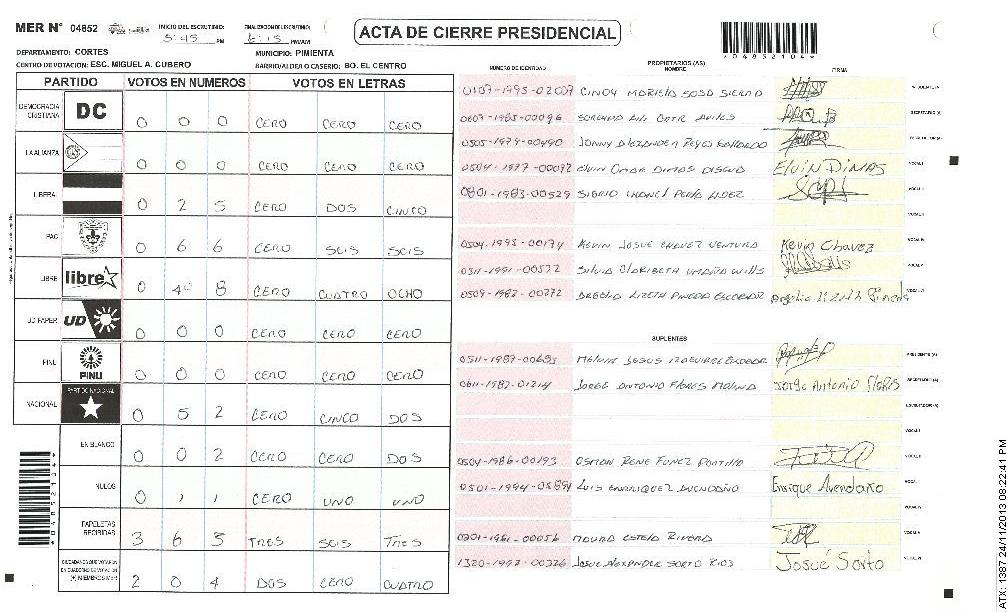 MER Nº 04852 INICIO DEL ESCRUTINIO: 5:45 PM FINALIZACION DEL ESCRUTINIO: 6:15 PM/AM
ACTA DE CIERRE PRESIDENCIAL
DEPARTAMENTO: CORTES MUNICIPIO: PIMIENTA
CENTRO DE VOTACION: ESC. MIGUEL A. CUBERO BARRIO/ALDEA O CASERIO: BO. EL CENTRO
*04852104*
PARTIDO VOTOS EN NUMEROS VOTOS EN LETRAS
DEMOCRACIA CRISTIANA DC 0 0 0 CERO CERO CERO
LA ALIANZA 0 0 0 CERO CERO CERO
LIBERAL 0 2 5 CERO DOS CINCO
PAC 0 6 6 CERO SEIS SEIS
LIBRE libre 0 4 8 CERO CUATRO OCHO
UD-FAPER UD 0 0 0 CERO CERO CERO
PINU PINU 0 0 0 CERO CERO CERO
NACIONAL PARTIDO NACIONAL 0 5 2 CERO CINCO DOS
EN BLANCO 0 0 2 CERO CERO DOS
NULOS 0 1 1 CERO UNO UNO
PAPELETAS RECIBIDAS 3 6 3 TRES SEIS TRES
CIUDADANOS QUE VOTARON EN CUADERNO DE VOTACION (+) MIEMBROS MER 2 0 4 DOS CERO CUATRO
NUMERO DE IDENTIDAD PROPIETARIOS (AS) NOMBRE FIRMA
0107-1995-02007 SOSA PRESIDENTE (A)
0607-1985-00096 SECRETARIO (A)
0505-1979-00490 ESCRUTADOR (A)
0504-1977-00072 ELVIN OMAR DIMAS ELVIN DIMAS VOCAL I
0801-1983-00529 VOCAL II
VOCAL III
0504-1995-00174 KEVIN JOSUE CHAVEZ VENTURA Kevin Chavez VOCAL IV
0311-1991-00572 SILVIA CLARIBETH UMAÑA WILLS VOCAL V
0509-1982-00272 LIZETH PINEDA ESCOBAR VOCAL VI
SUPLENTES
0511-1987-00693 JESUS PRESIDENTE (A)
0611-1982-01214 JORGE ANTONIO FLORES MOLINA Jorge Antonio Flores SECRETARIO (A)
ESCRUTADOR (A)
VOCAL I
0504-1986-00193 OSMAN RENE FUNEZ PORTILLO VOCAL II
0501-1994-05894 LUIS ENRRIQUEZ AVENDAÑO Enrique Avendaño
0201-1981-00056 RIVERA VOCAL V
1320-1992-00326 JOSUE ALEXANDER SORTO RIOS Josué Sorto VOCAL VI
*04852104*
ATX: 1387 24/11/2013 08:22:41 PM